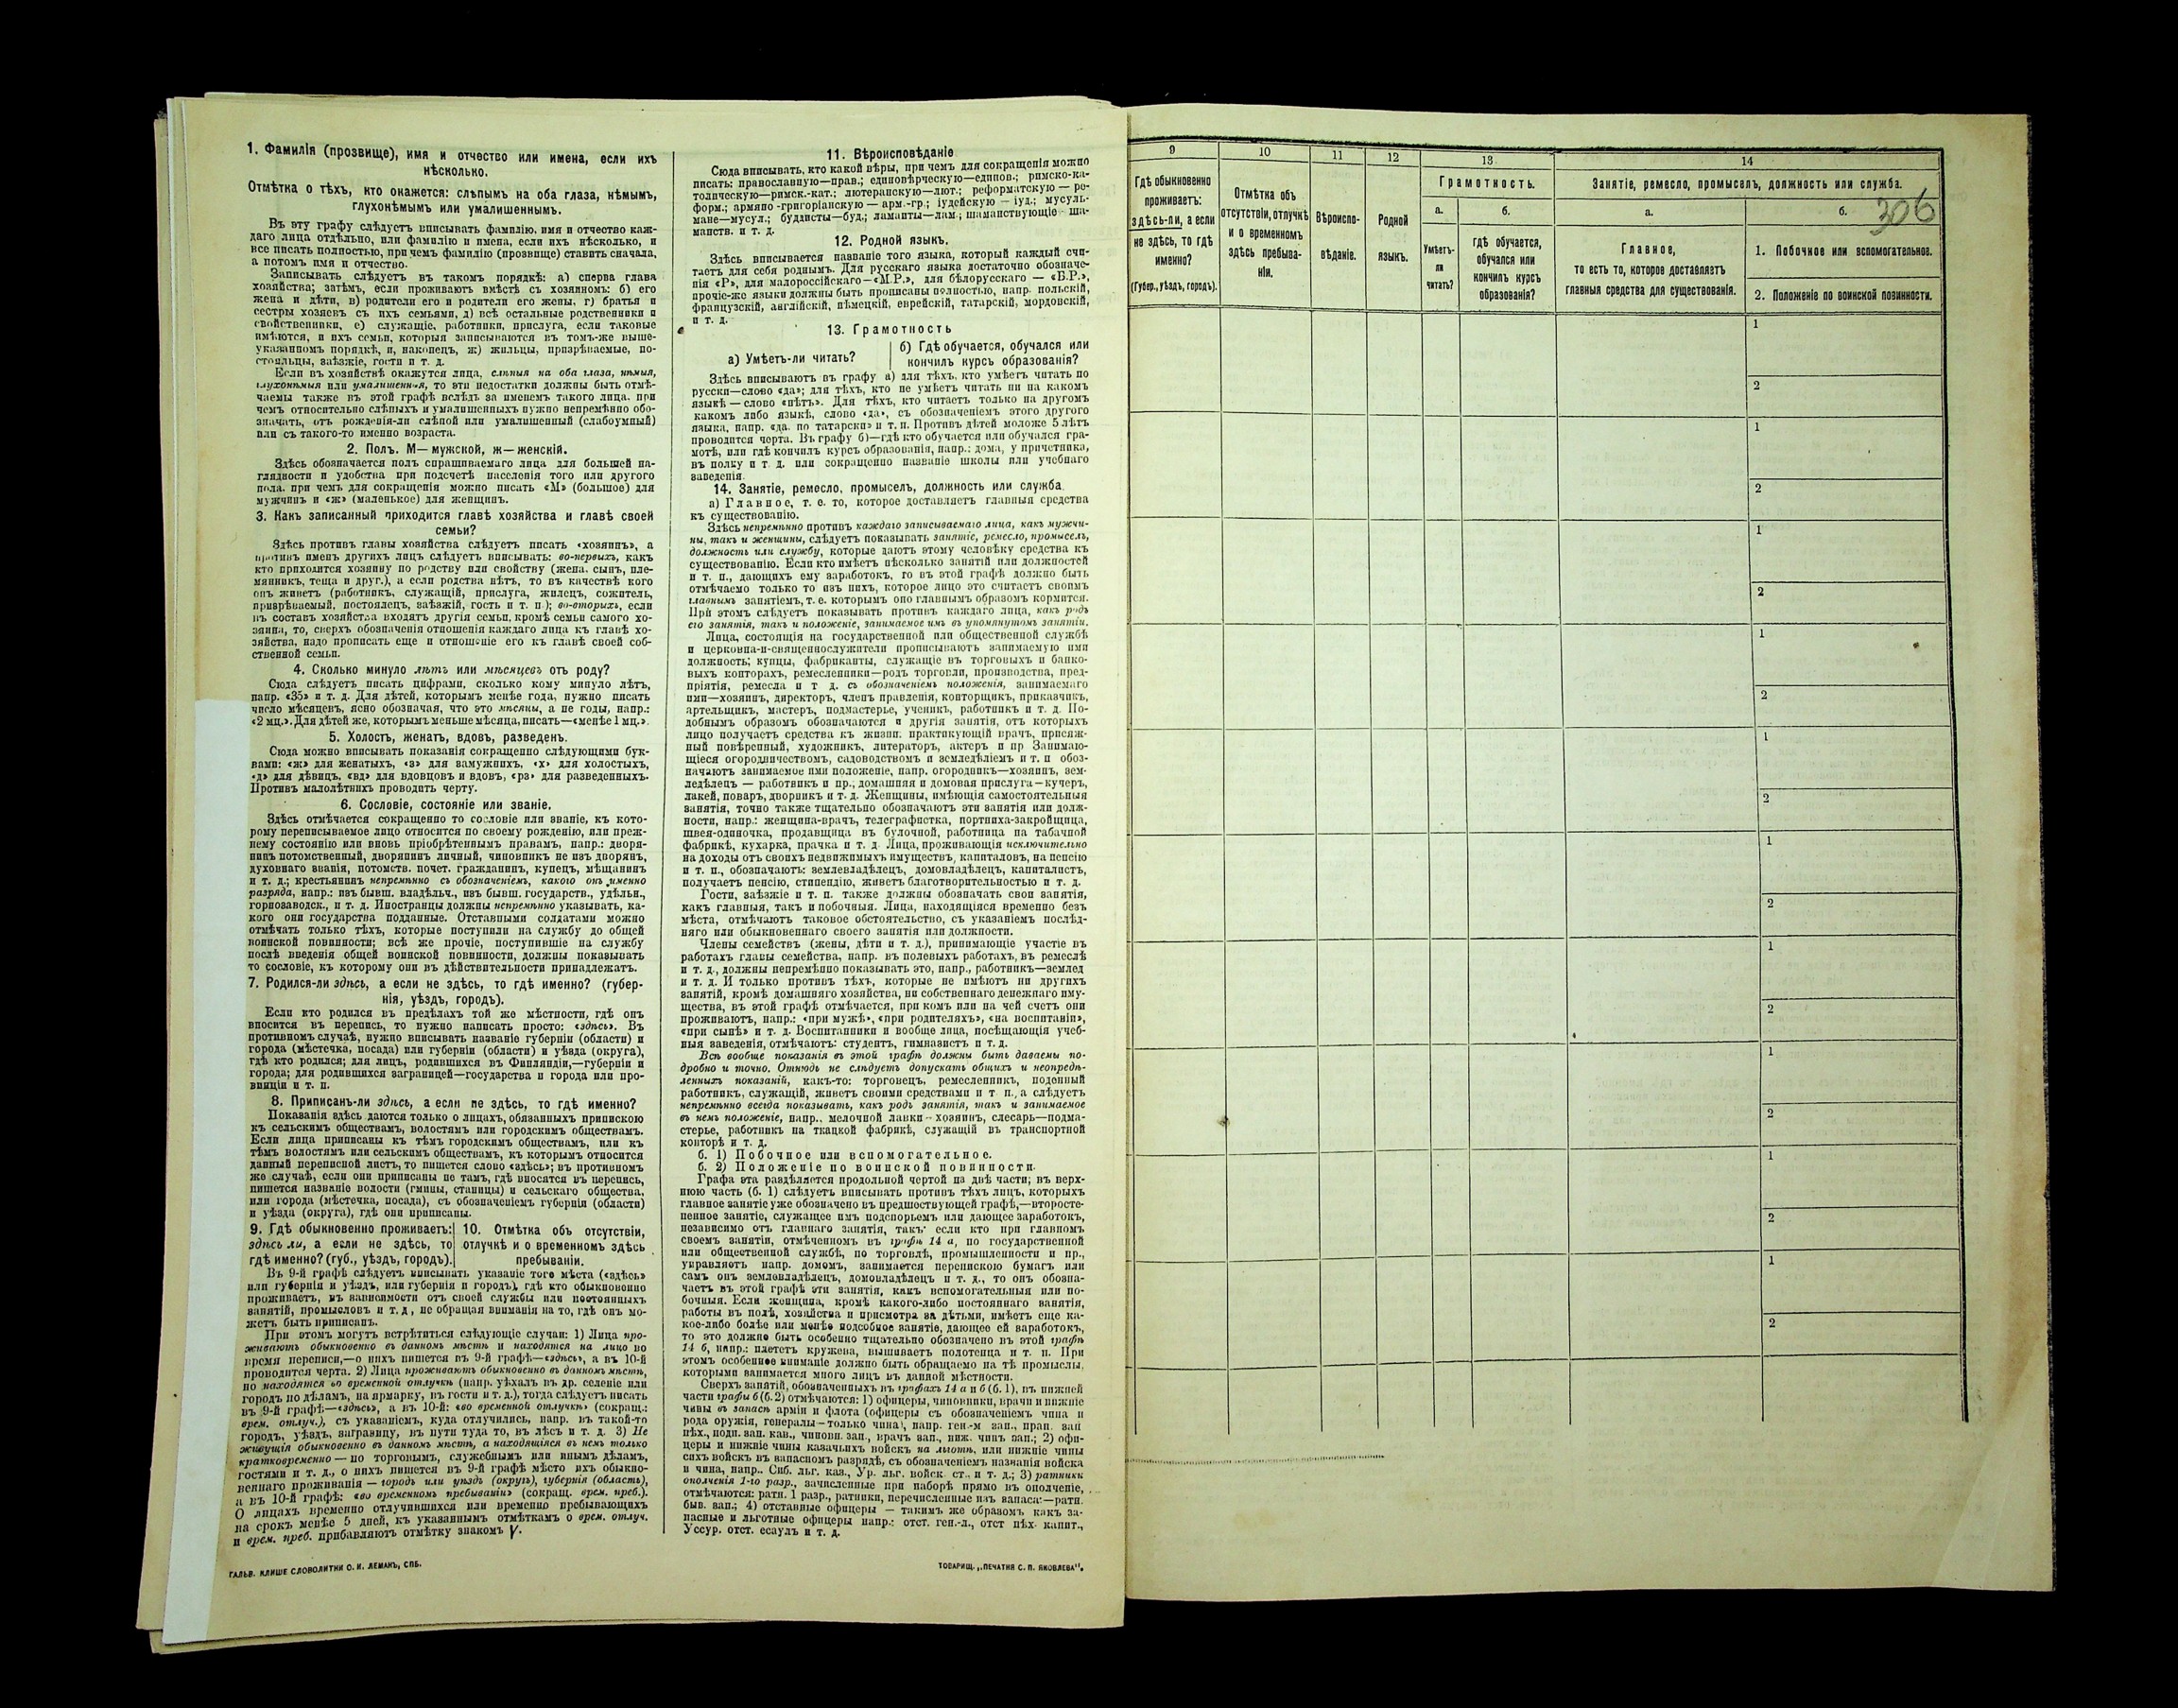 1. Фамилія (прозвище), имя и отчество или имена, если ихъ
нѣсколько.
Отмѣтка о тѣхъ, кто окажется: слѣпымъ на оба глаза, нѣмымъ,
глухонѣмымъ или умалишеннымъ.
Въ эту графу слѣдуетъ вписывать фамилію, имя и отчество каж-
даго лица отдѣльно, или фамилію и имена, если ихъ нѣсколько, и
все писать полностью, при чемъ фамилію (прозвище) ставить сначала,
а потомъ имя и отчество.
Записывать слѣдуетъ въ такомъ порядкѣ: а) сперва глава
хозяйства; затѣмъ, если проживаютъ вмѣстѣ съ хозяиномъ: б) его
жена и дѣти, в) родители его и родители его жены, г) братья и
сестры хозяевъ съ ихъ семьями, д) всѣ остальные родственники и
свойственники, е) служащіе, работники, прислуга, если таковые
имѣются, и ихъ семьи, которыя записываются въ томъ-же выше-
указанномъ порядкѣ, и, наконецъ, ж) жильцы, призрѣваемые, по-
стояльцы, заѣзжіе, гости и т. д.
Если въ хозяйствѣ окажутся лица, слѣпыя на оба глаза, нѣмыя,
глухонѣмыя или умалишенныя, то эти недостатки должны быть отмѣ-
чаемы также въ этой графѣ вслѣдъ за именемъ такого лица, при
чемъ относительно слѣпыхъ и умалишенныхъ нужно непремѣнно обо-
значать, отъ рожденія-ли слѣпой или умалишенный (слабоумный)
или съ такого-то именно возраста.
2. Полъ. М— мужской, ж— женскій.
Здѣсь обозначается полъ спрашиваемаго лица для большей на-
глядности и удобства при подсчетѣ населенія того или другого
пола, при чемъ для сокращенія можно писать «М» (большое) для
мужчинъ и «ж» (маленькое) для женщинъ.
3. Какъ записанный приходится главѣ хозяйства и главѣ своей
семьи?
Здѣсь противъ главы хозяйства слѣдуетъ писать «хозяинъ», а
противъ именъ другихъ лицъ слѣдуетъ вписывать: во-первыхъ, какъ
кто приходится хозяину по родству или свойству (жена, сынъ, пле-
мянникъ, теща и друг.), а если родства нѣтъ, то въ качествѣ кого
онъ живетъ (работникъ, служащій, прислуга, жилецъ, сожитель,
призрѣваемый, постоялецъ, заѣзжій, гость и т. п.); во-вторыхъ, если
въ составъ хозяйства входятъ другія семьи, кромѣ семьи самого хо-
зяина, то, сверхъ обозначенія отношенія каждаго лица къ главѣ хо-
зяйства, надо прописать еще и отношеніе его къ главѣ своей соб-
ственной семьи.
4. Сколько минуло лѣтъ или мѣсяцевъ отъ роду?
Сюда слѣдуетъ писать цифрами, сколько кому минуло лѣтъ,
напр. «35» и т. д. Для дѣтей, которымъ менѣе года, нужно писать
число мѣсяцевъ, ясно обозначая, что это мѣсяцы, а не годы, напр.:
«2 мц.». Для дѣтей же, которымъ меньше мѣсяца, писать—«менѣе 1 мц.».
5. Холостъ, женатъ, вдовъ, разведенъ.
Сюда можно вписывать показанія сокращенно слѣдующими бук-
вами: «ж» для женатыхъ, «з» для замужнихъ, «х» для холостыхъ,
«д» для дѣвицъ, «вд» для вдовцовъ и вдовъ, «рз» для разведенныхъ.
Противъ малолѣтнихъ проводить черту.
6. Сословіе, состояніе или званіе.
Здѣсь отмѣчается сокращенно то сословіе или званіе, къ кото-
рому переписываемое лицо относится по своему рожденію, или преж-
нему состоянію или вновь пріобрѣтеннымъ правамъ, напр.: дворя-
нинъ потомственный, дворянинъ личный, чиновникъ не изъ дворянъ,
духовнаго званія, потомств. почет. гражданинъ, купецъ, мѣщанинъ
и т. д.; крестьянинъ непремѣнно съ обозначеніемъ, какого онъ именно
разряда, напр.: изъ бывш. владѣльч., изъ бывш. государств., удѣльн.,
горнозаводск., и т. д. Иностранцы должны непремѣнно указывать, ка-
кого они государства подданные. Отставными солдатами можно
отмѣчать только тѣхъ, которые поступили на службу до общей
воинской повинности; всѣ же прочіе, поступившіе на службу
послѣ введенія общей воинской повинности, должны показывать
то сословіе, къ которому они въ дѣйствительности принадлежатъ.
7. Родился-ли здѣсь, а если не здѣсь, то гдѣ именно? (губер-
нія, уѣздъ, городъ).
Если кто родился въ предѣлахъ той же мѣстности, гдѣ онъ
вносится въ перепись, то нужно написать просто: «здѣсь». Въ
противномъ случаѣ, нужно вписывать названіе губерніи (области) и
города (мѣстечка, посада) или губерніи (области) и уѣзда (округа),
гдѣ кто родился; для лицъ, родившихся въ Финляндіи,—губерніи и
города; для родившихся заграницей—государства и города или про-
винціи и т. п.
8. Приписанъ-ли здѣсь, а если не здѣсь, то гдѣ именно?
Показанія здѣсь даются только о лицахъ, обязанныхъ припискою
къ сельскимъ обществамъ, волостямъ или городскимъ обществамъ.
Если лица приписаны къ тѣмъ городскимъ обществамъ, или къ
тѣмъ волостямъ или сельскимъ обществамъ, къ которымъ относится
данный переписной листъ, то пишется слово «здѣсь»; въ противномъ
же случаѣ, если они приписаны не тамъ, гдѣ вносятся въ перепись,
пишется названіе волости (гмины, станицы) и сельскаго общества,
или города (мѣстечка, посада), съ обозначеніемъ губерніи (области)
и уѣзда (округа), гдѣ они приписаны.
9. Гдѣ обыкновенно проживаетъ:
здѣсь ли, а если не здѣсь, то
гдѣ именно? (губ., уѣздъ, городъ).
10. Отмѣтка объ отсутствіи,
отлучкѣ и о временномъ здѣсь
пребываніи.
Въ 9-й графѣ слѣдуетъ вписывать указаніе того мѣста («здѣсь»
или губернія и уѣздъ, или губернія и городъ), гдѣ кто обыкновенно
проживаетъ, въ зависимости отъ своей службы или постоянныхъ
занятій, промысловъ и т. д., не обращая вниманія на то, гдѣ онъ мо-
жетъ быть приписанъ.
При этомъ могутъ встрѣтиться слѣдующіе случаи: 1) Лица про-
живаютъ обыкновенно въ данномъ мѣстѣ и находятся на лицо во
время переписи,—о нихъ пишется въ 9-й графѣ—«здѣсь», а въ 10-й
проводится черта. 2) Лица проживаютъ обыкновенно въ данномъ мѣстѣ,
но находятся во временной отлучкѣ (напр. уѣхалъ въ др. селеніе или
городъ по дѣламъ, на ярмарку, въ гости и т. д.), тогда слѣдуетъ писать
въ 9-й графѣ—«здѣсь», а въ 10-й: «во временной отлучкѣ» (сокращ.:
врем. отлуч.), съ указаніемъ, куда отлучились, напр. въ такой-то
городъ, уѣздъ, заграницу, въ пути туда то, въ лѣсъ и т. д. 3) Не
живущія обыкновенно въ данномъ мѣстѣ, а находящіяся въ немъ только
кратковременно — по торговымъ, служебнымъ или инымъ дѣламъ,
гостями и т. д., о нихъ пишется въ 9-й графѣ мѣсто ихъ обыкно-
веннаго проживанія — городъ или уѣздъ (округъ), губернія (область),
а въ 10-й графѣ: «во временномъ пребываніи» (сокращ. врем. преб.).
О лицахъ временно отлучившихся или временно пребывающихъ
на срокъ менѣе 5 дней, къ указаннымъ отмѣткамъ о врем. отлуч.
и врем. преб. прибавляютъ отмѣтку знакомъ V.
ГАЛЬВ. КЛИШЕ СЛОВОЛИТНИ О. И. ЛЕМАНЪ, СПБ.
11. Вѣроисповѣданіе
Сюда вписывать, кто какой вѣры, при чемъ для сокращенія можно
писать: православную—прав.; единовѣрческую—единов.; римско-ка-
толическую—римск.-кат.; лютеранскую—лют.; реформатскую — ре-
форм.; армяно-григоріанскую — арм.-гр.; іудейскую — іуд.; мусуль-
мане—мусул.; буддисты—буд.; ламаиты—лам.; шаманствующіе — ша-
манств. и т. д.
12. Родной языкъ.
Здѣсь вписывается названіе того языка, который каждый счи-
таетъ для себя роднымъ. Для русскаго языка достаточно обозначе-
нія «Р», для малороссійскаго—«М.Р.», для бѣлорусскаго — «Б.Р.»,
прочіе-же языки должны быть прописаны полностью, напр. польскій,
французскій, англійскій, нѣмецкій, еврейскій, татарскій, мордовскій,
и т. д.
13. Грамотность
а) Умѣетъ-ли читать?
б) Гдѣ обучается, обучался или
кончилъ курсъ образованія?
Здѣсь вписываютъ въ графу а) для тѣхъ, кто умѣетъ читать по
русски—слово «да»; для тѣхъ, кто не умѣетъ читать ни на какомъ
языкѣ — слово «нѣтъ». Для тѣхъ, кто читаетъ только на другомъ
какомъ либо языкѣ, слово «да», съ обозначеніемъ этого другого
языка, напр. «да, по татарски» и т. п. Противъ дѣтей моложе 5 лѣтъ
проводится черта. Въ графу б)—гдѣ кто обучается или обучался гра-
мотѣ, или гдѣ кончилъ курсъ образованія, напр.: дома, у причетника,
въ полку и т. д. или сокращенно названіе школы или учебнаго
заведенія.
14. Занятіе, ремесло, промыселъ, должность или служба
а) Главное, т. е. то, которое доставляетъ главныя средства
къ существованію.
Здѣсь непремѣнно противъ каждаго записываемаго лица, какъ мужчи-
ны, такъ и женщины, слѣдуетъ показывать занятіе, ремесло, промыселъ,
должность или службу, которые даютъ этому человѣку средства къ
существованію. Если кто имѣетъ нѣсколько занятій или должностей
и т. п., дающихъ ему заработокъ, то въ этой графѣ должно быть
отмѣчаемо только то изъ нихъ, которое лицо это считаетъ своимъ
главнымъ занятіемъ, т. е. которымъ оно главнымъ образомъ кормится.
При этомъ слѣдуетъ показывать противъ каждаго лица, какъ родъ
его занятія, такъ и положеніе, занимаемое имъ въ упомянутомъ занятіи.
Лица, состоящія на государственной или общественной службѣ
и церковно-и-священнослужители прописываютъ занимаемую ими
должность; купцы, фабриканты, служащіе въ торговыхъ и банко-
выхъ конторахъ, ремесленники—родъ торговли, производства, пред-
пріятія, ремесла и т д. съ обозначеніемъ положенія, занимаемаго
ими—хозяинъ, директоръ, членъ правленія, конторщикъ, приказчикъ,
артельщикъ, мастеръ, подмастерье, ученикъ, работникъ и т. д. По-
добнымъ образомъ обозначаются и другія занятія, отъ которыхъ
лицо получаетъ средства къ жизни: практикующій врачъ, присяж-
ный повѣренный, художникъ, литераторъ, актеръ и пр Занимаю-
щіеся огородничествомъ, садоводствомъ и земледѣліемъ и т. п обоз-
начаютъ занимаемое ими положеніе, напр. огородникъ—хозяинъ, зем-
ледѣлецъ — работникъ и пр.; домашняя и домовая прислуга—кучеръ,
лакей, поваръ, дворникъ и т. д. Женщины, имѣющія самостоятельныя
занятія, точно также тщательно обозначаютъ эти занятія или долж-
ности, напр.: женщина-врачъ, телеграфистка, портниха-закройщица,
швея-одиночка, продавщица въ булочной, работница на табачной
фабрикѣ, кухарка, прачка и т. д. Лица, проживающія исключительно
на доходы отъ своихъ недвижимыхъ имуществъ, капиталовъ, на пенсію
и т. п., обозначаютъ: землевладѣлецъ, домовладѣлецъ, капиталистъ,
получаетъ пенсію, стипендію, живетъ благотворительностью и т. д.
Гости, заѣзжіе и т. п. также должны обозначать свои занятія,
какъ главныя, такъ и побочныя. Лица, находящіяся временно безъ
мѣста, отмѣчаютъ таковое обстоятельство, съ указаніемъ послѣд-
няго или обыкновеннаго своего занятія или должности.
Члены семействъ (жены, дѣти и т. д.), принимающіе участіе въ
работахъ главы семейства, напр. въ полевыхъ работахъ, въ ремеслѣ
и т. д., должны непремѣнно показывать это, напр., работникъ—землед
и т. д. И только противъ тѣхъ, которые не имѣютъ ни другихъ
занятій, кромѣ домашняго хозяйства, ни собственнаго денежнаго иму-
щества, въ этой графѣ отмѣчается, при комъ или на чей счетъ они
проживаютъ, напр.: «при мужѣ», «при родителяхъ», «на воспитаніи»,
«при сынѣ» и т. д. Воспитанники и вообще лица, посѣщающія учеб-
ныя заведенія, отмѣчаютъ: студентъ, гимназистъ и т. д.
Всѣ вообще показанія въ этой графѣ должны быть даваемы по-
дробно и точно. Отнюдь не слѣдуетъ допускать общихъ и неопредѣ-
ленныхъ показаній, какъ-то: торговецъ, ремесленникъ, поденный
работникъ, служащій, живетъ своими средствами и т п., а слѣдуетъ
непремѣнно всегда показывать, какъ родъ занятія, такъ и занимаемое
въ немъ положеніе, напр., мелочной лавки—хозяинъ, слесарь—подма-
стерье, работникъ на ткацкой фабрикѣ, служащій въ транспортной
конторѣ и т. д.
б. 1) Побочное или вспомогательное.
б. 2) Положеніе по воинской повинности.
Графа эта раздѣляется продольной чертой на двѣ части; въ верх-
нюю часть (б. 1) слѣдуетъ вписывать противъ тѣхъ лицъ, которыхъ
главное занятіе уже обозначено въ предшествующей графѣ,—второсте-
пенное занятіе, служащее имъ подспорьемъ или дающее заработокъ,
независимо отъ главнаго занятія, такъ: если кто при главномъ
своемъ занятіи, отмѣченномъ въ графѣ 14 а, по государственной
или общественной службѣ, по торговлѣ, промышленности и пр.,
управляетъ напр. домомъ, занимается перепискою бумагъ или
самъ онъ землевладѣлецъ, домовладѣлецъ и т. д., то онъ обозна-
чаетъ въ этой графѣ эти занятія, какъ вспомогательныя или по-
бочныя. Если женщина, кромѣ какого-либо постояннаго занятія,
работы въ полѣ, хозяйства и присмотра за дѣтьми, имѣетъ еще ка-
кое-либо болѣе или менѣе подсобное занятіе, дающее ей заработокъ,
то это должно быть особенно тщательно обозначено въ этой графѣ
14 б, напр.: плететъ кружева, вышиваетъ полотенца и т. п. При
этомъ особенное вниманіе должно быть обращаемо на тѣ промыслы,
которыми занимается много лицъ въ данной мѣстности.
Сверхъ занятій, обозначенныхъ въ графахъ 14 а и б (б. 1), въ нижней
части графы б (б. 2) отмѣчаются: 1) офицеры, чиновники, врачи и нижніе
чины въ запасѣ арміи и флота (офицеры съ обозначеніемъ чина и
рода оружія, генералы—только чина), напр. ген.-м зап., прап. зап
пѣх., подп. зап. кав., чиновн. зап., врачъ зап., ниж. чинъ зап.; 2) офи-
церы и нижніе чины казачьихъ войскъ на льготѣ, или нижніе чины
сихъ войскъ въ запасномъ разрядѣ, съ обозначеніемъ названія войска
и чина, напр.. Сиб. льг. каз., Ур. льг. войск. ст., и т. д.; 3) ратники
ополченія 1-го разр., зачисленные при наборѣ прямо въ ополченіе,
отмѣчаются: ратн. 1 разр., ратники, перечисленные изъ запаса:—ратн.
быв. зап.; 4) отставные офицеры — такимъ же образомъ какъ за-
пасные и льготные офицеры напр.: отст. ген.-л., отст пѣх. капит.,
Уссур. отст. есаулъ и т. д.
ТОВАРИЩ. „ПЕЧАТНЯ С. П. ЯКОВЛЕВА".
9 10 11 12 13 14
Гдѣ обыкновенно
проживаетъ:
здѣсь-ли, а если
не здѣсь, то гдѣ
именно?
(Губер., уѣздъ, городъ).
Отмѣтка объ
отсутствіи, отлучкѣ
и о временномъ
здѣсь пребыва-
ніи.
Вѣроиспо-
вѣданіе.
Родной
языкъ.
Грамотность.
а.
Умѣетъ-
ли
читать?
б.
гдѣ обучается,
обучался или
кончилъ курсъ
образованія?
Занятіе, ремесло, промыселъ, должность или служба.
306
а.
Главное,
то есть то, которое доставляетъ
главныя средства для существованія.
б.
1. Побочное или вспомогательное.
2. Положеніе по воинской повинности.
1
2
1
2
1
2
1
2
1
2
1
2
1
2
1
2
1
2
1
2